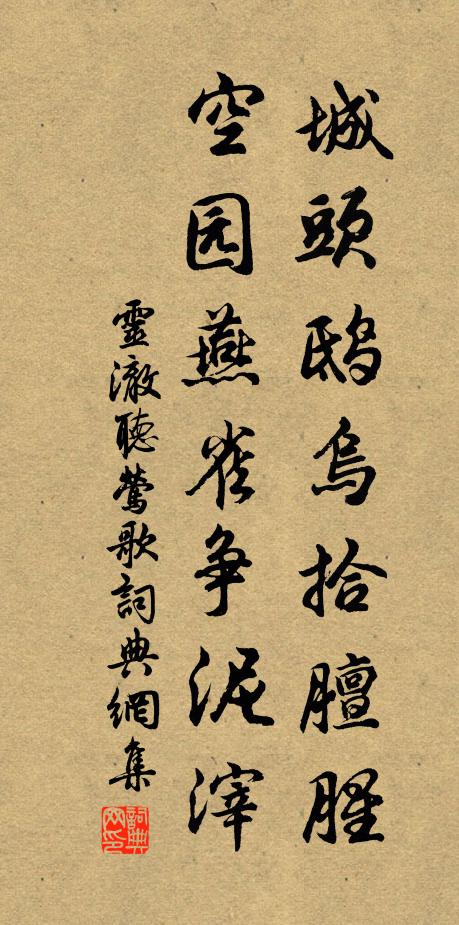 城頭鸱烏拾膻腥
空园燕雀争泥滓
靈澈聽鶯歌詞典網集
詞典网印